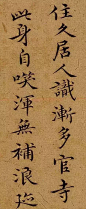 住久居人識漸多官寺
此身自笑渾無補浪迹